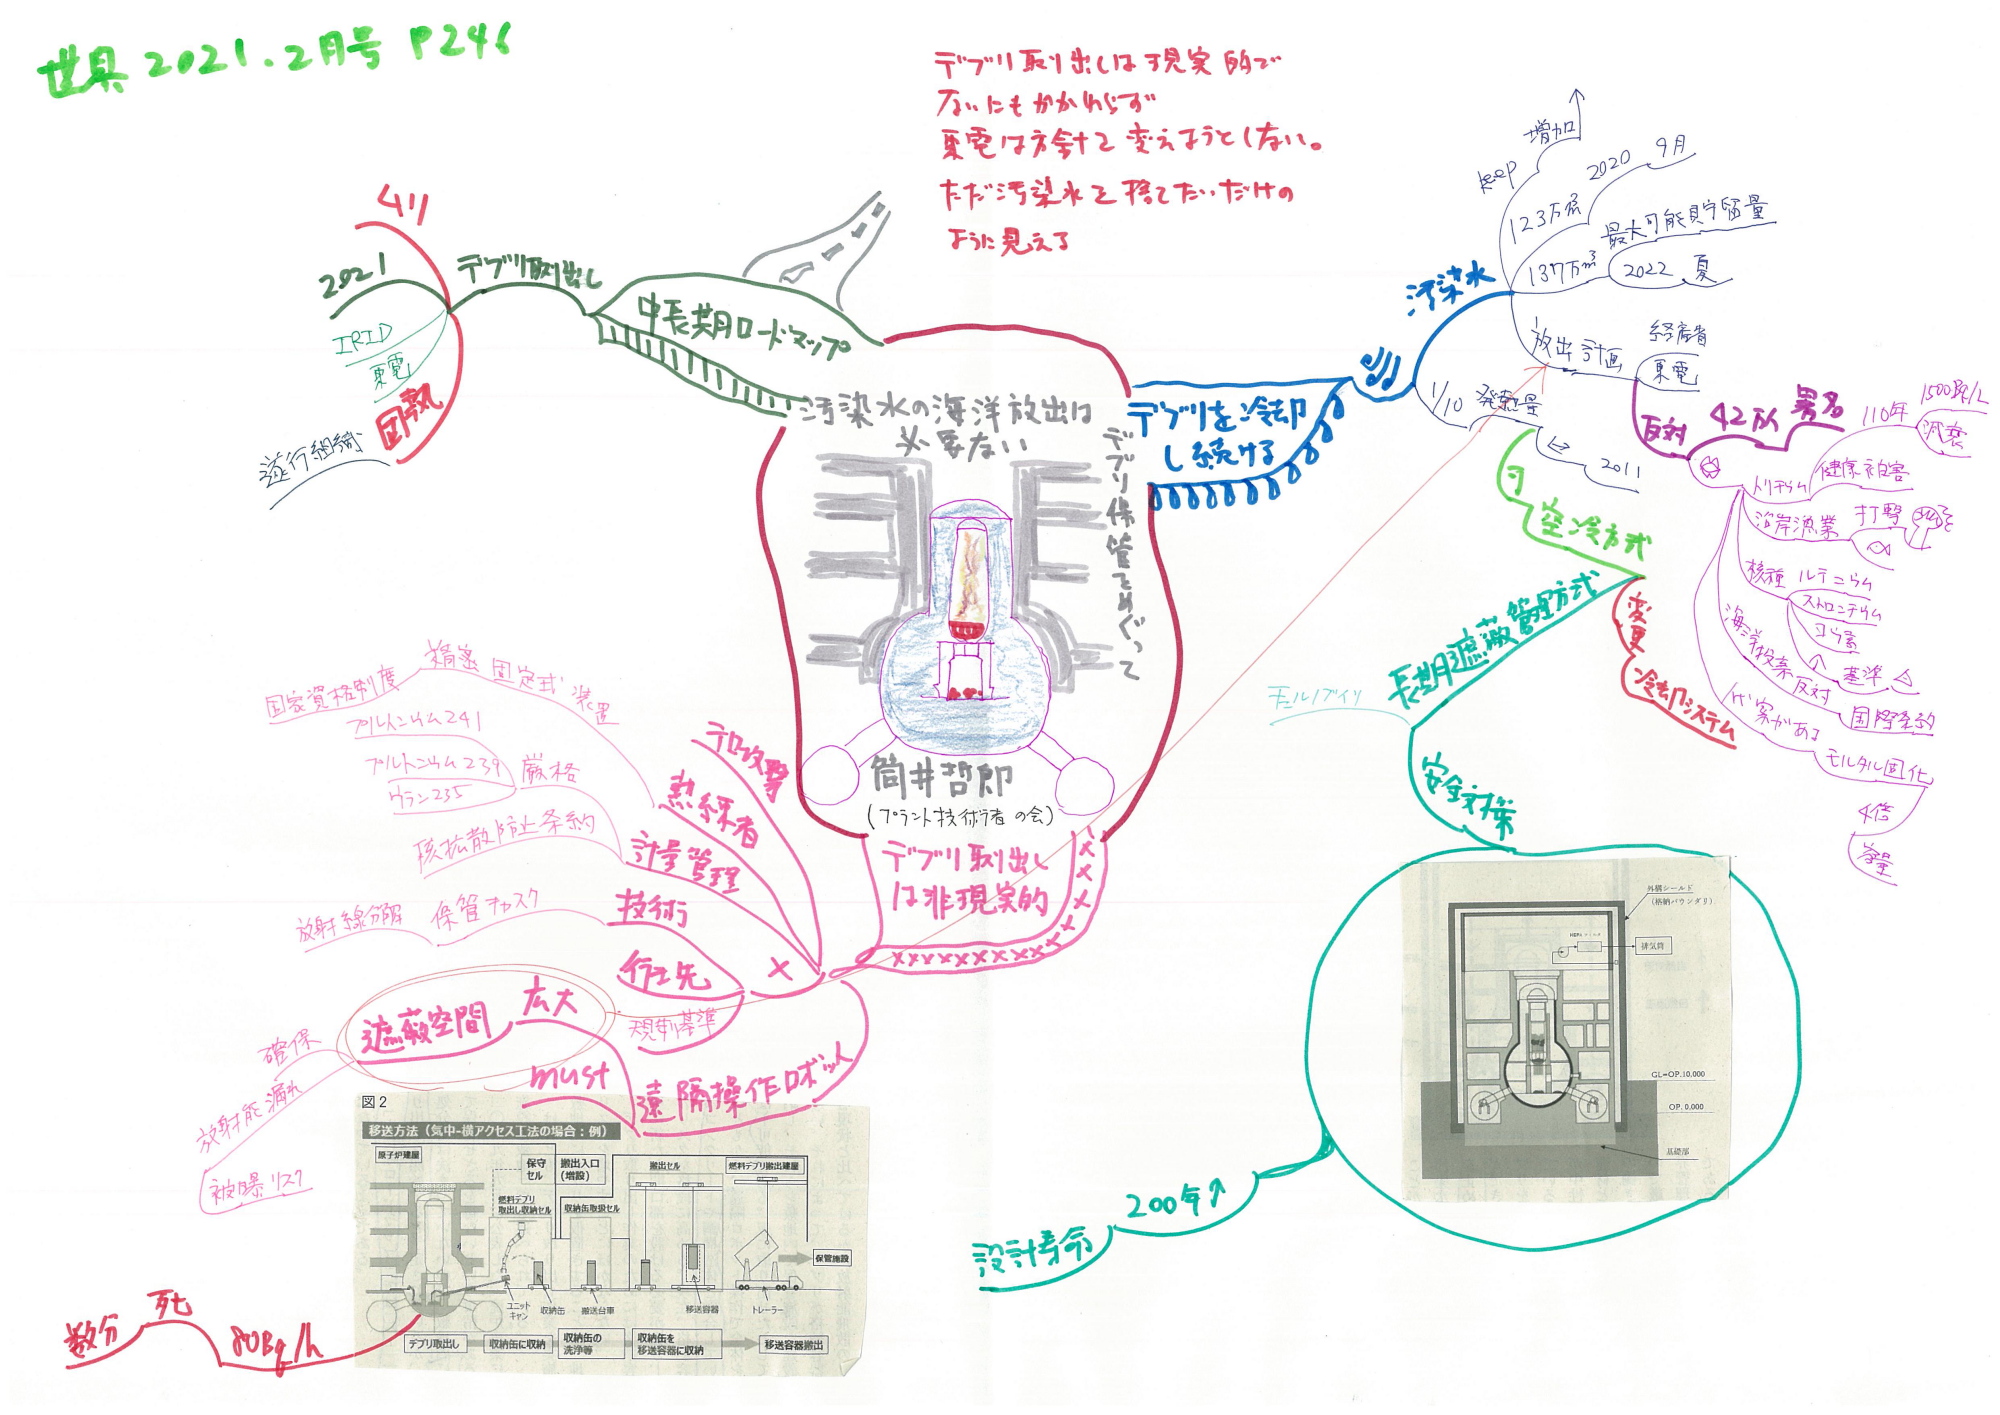 世界 2021.2月号 P246
デブリ取り出しは現実的で
ないにもかかわらず
東電は方針を変えようとしない。
ただ汚染水を捨てたいだけの
ように見える
中長期ロードマップ
デブリ取出し
2021
IRID
東電
困難
遂行組織
汚染水の海洋放出は
必要ない
デブリ保管をめぐって
筒井哲郎
(プラント技術者の会)
デブリを冷却
し続ける
汚染水
keep
増加
123万㎥
2020
9月
137万㎥
最大可能貯留量
2022 夏
放出計画
経産省
東電
反対
42万
署名
トリチウム
健康被害
110年
1500Bq/L
減衰
沿岸漁業
打撃
核種
ルテニウム
ストロンチウム
ヨウ素
基準
海洋投棄反対
国際条約
代案がある
モルタル固化
4倍
容量
1/10 発熱量
2011
可
空冷方式
変更
冷却システム
長期遮蔽管理方式
チェルノブイリ
安全対策
外構シールド
(格納バウンダリ)
排気筒
GL=OP.10,000
OP. 0,000
基礎部
200年↑
設計寿命
デブリ取り出し
は非現実的
×
テロ攻撃
熟練者
固定式装置
精密
国家資格制度
計量管理
厳格
プルトニウム241
プルトニウム239
ウラン235
核拡散防止条約
技術
保管キャスク
放射線分解
行き先
規制基準
遠隔操作ロボット
must
広大
遮蔽空間
確保
放射能漏れ
被曝リスク
図2
移送方法（気中-横アクセス工法の場合：例）
原子炉建屋
保守
セル
搬出入口
（増設）
搬出セル
燃料デブリ搬出建屋
燃料デブリ
取出し収納セル
収納缶取扱セル
保管施設
ユニット
キャン
収納缶
搬送台車
移送容器
トレーラー
デブリ取出し
収納缶に収納
収納缶の
洗浄等
収納缶を
移送容器に収納
移送容器搬出
80Bq/h
死
数分